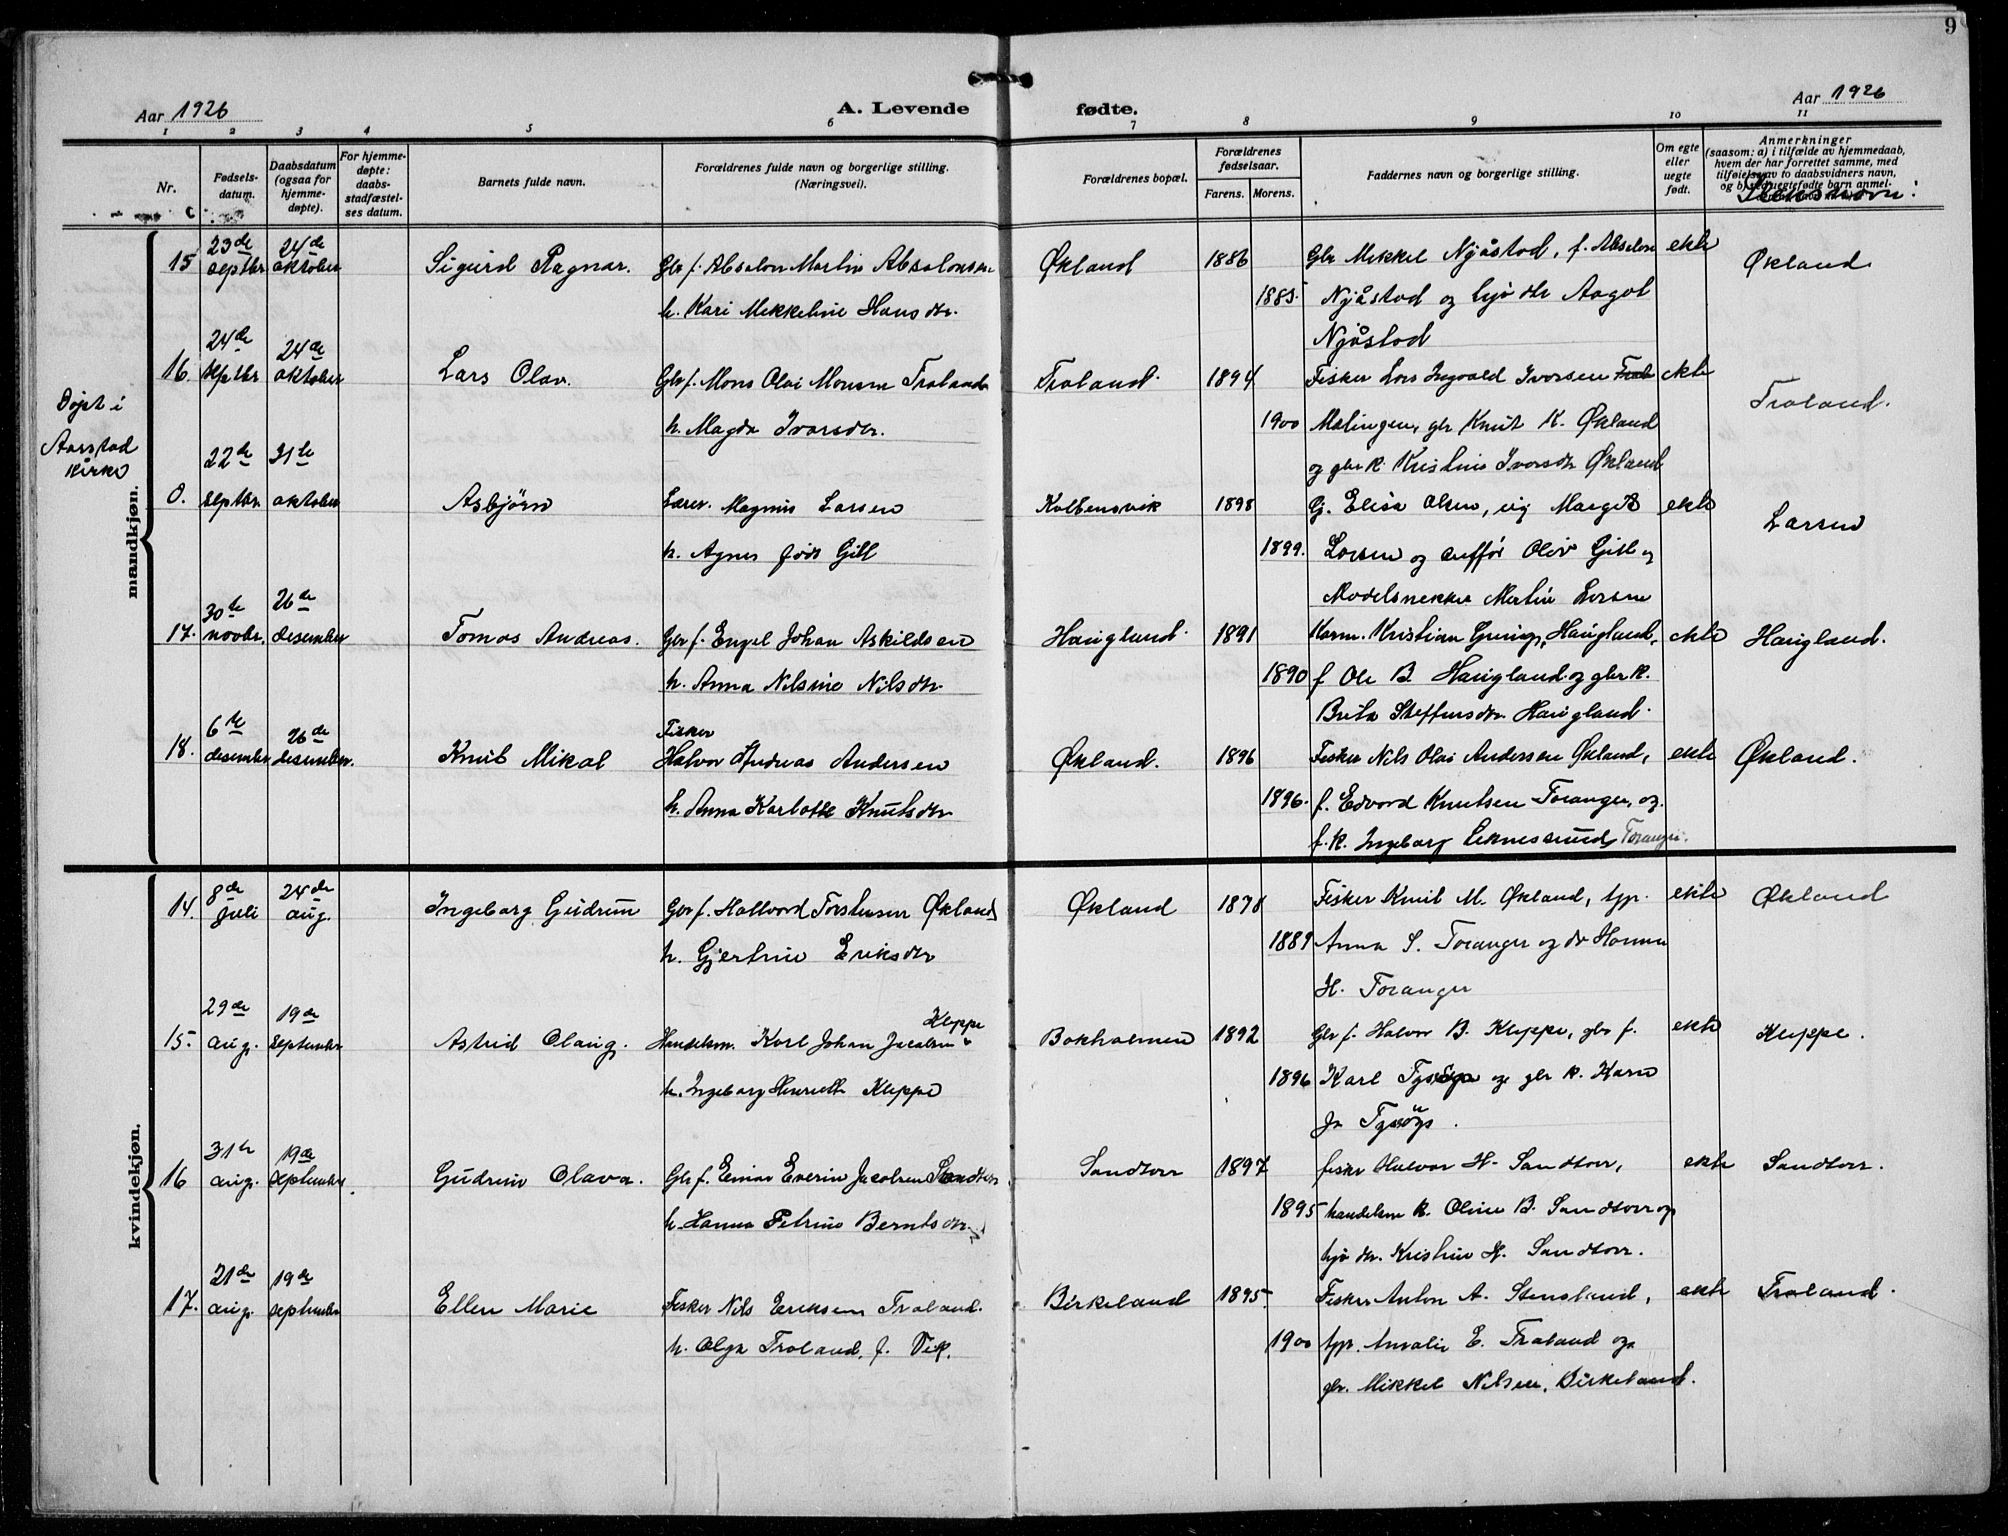 9
Aar 1926
A. Levende fødte.
Aar 1926
1 2 3 4 5 6 7 8 9 10 11
Nr.
Fødsels-
datum.
Daabsdatum
(ogsaa for
hjemme-
døpte).
For hjemme-
døpte:
daabs-
stadfæstel-
ses datum.
Barnets fulde navn.
Forældrenes fulde navn og borgerlige stilling.
(Næringsvei).
Forældrenes bopæl.
Forældrenes
fødselsaar.
Farens. Morens.
Faddernes navn og borgerlige stilling.
Om egte
eller
uegte
født.
Anmerkninger
(saasom: a) i tilfælde av hjemmedaab,
hvem der har forrettet samme, med
tilføielse av to daabsvidners navn,
og b) ved uegtefødte barn anmel-
mandkjøn.
15 23de septbr. 24de oktober Sigurd Ragnar. Gbr f. Absalon Martin Absalonsen Økland 1886 Gbr Mikkel Njåstad, f. Absalon ekte Økland
h. Kari Mekkeline Hansdtr. 1885. Njåstad og husj dtr Aagot
Njåstad
16. 24de septbr 24de oktober Lars Olav. Gbr f. Mons Olai Monsen Traland Traland 1894 Fisker Lars Ingvald Iversen ekte Traland.
h. Magda Ivarsdtr. 1900 Malingen, gbr Knut K. Økland
og gbr k. Kristine Iversdtr Økland
Døpt i
Aarstad
kirke
0. 22de septbr. 31te oktober Asbjørn Lærer. Magnus Larsen Kolbensvik 1898 G. Elisa Olsen, ug Margit ekte Larsen
h. Agnes født Gill 1899. Larsen og Olav Gill og
Modelsnekker Martin Larsen
17. 30te novbr. 26de desember Tomas Andreas. Gbr f. Engel Johan Askildsen Haugland. 1891 Kårm. Kristian Haugland, ekte Haugland.
h. Anna Nilsine Nilsdtr. 1890 f Ole B. Haugland og gbr k.
Brita Steffensdtr. Haugland.
18. 6te desember 26de desember. Knut Mikal Fisker
Halvor Andreas Andersen Økland. 1896 Fisker Nils Olai Andersen Økland, ekte Økland.
h. Anna Karlotte Knutsdtr 1896. f. Edvard Knutsen Toranger, og
f.k. Ingeborg Leknessund Toranger.
kvindekjøn.
14. 8de juli 24de aug. Ingeborg Gudrun Gbr f. Hallvard Torstensen Økland Økland 1878 Fisker Knut M. Økland, tjp. ekte Økland
h. Gjertine Eriksdtr 1889 Anna S. Toranger og dtr Hanna
H. Toranger
15. 29de aug. 19de september Astrid Olaug. Handelsm. Karl Johan Jacobsen Kleppe Bokholmen 1892 Gbr f. Halvor B. Kleppe, gbr f. ekte Kleppe.
h. Ingeborg Henriette Kleppe 1896 Karl Tysöy og gbr k. Karen
Jn Tysöy.
16 31te aug. 19de september. Gudrun Olava. Gbr f. Einar Everin Jacobsen Sandtorr Sandtorr 1897 fisker Halvor H. Sandtorr, ekte Sandtorr.
h. Hanna Petrine Berntsdtr. 1895 handelsm k. Oline B. Sandtorr og
hsj dtr. Kristine H. Sandtorr.
17. 21de aug. 19de september Ellen Marie Fisker Nils Eriksen Traland. Birkeland 1895. Fisker Anton A. Stensland, ekte Traland.
h. Olga Traland, f. Vik. 1900 tjp. Amalie E. Traland og
gbr. Mikkel Nilsen, Birkeland.